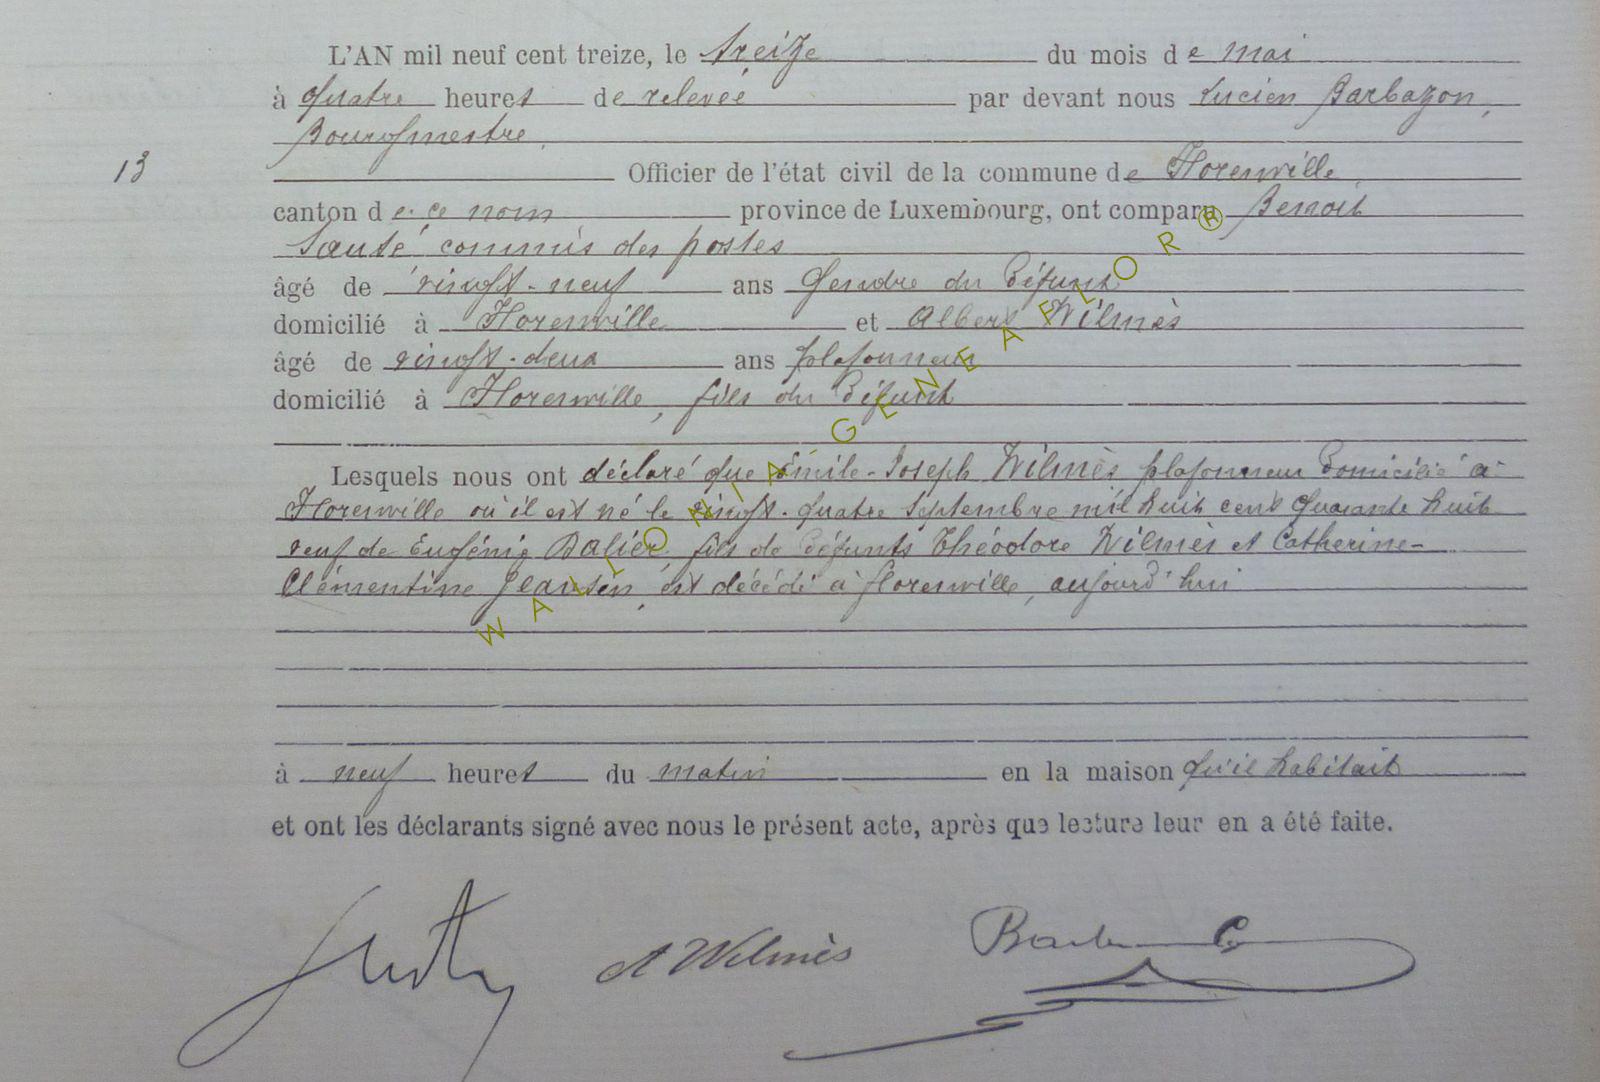 L'AN mil neuf cent treize, le treize du mois de mai
à quatre heures de relevée par devant nous Lucien Barbazon,
Bourgmestre,
13
Officier de l'état civil de la commune de Florenville
canton de ce nom province de Luxembourg, ont comparu Benoit
Sauté commis des postes
âgé de vingt-neuf ans Gendre du Défunt
domicilié à Florenville et Albert Wilmès
âgé de vingt-deux ans plafonneur
domicilié à Florenville, fils du Défunt
Lesquels nous ont déclaré que Emile-Joseph Wilmès, plafonneur Domicilié à
Florenville où il est né le vingt-quatre Septembre mil huit cent quarante huit
veuf de Eugénie Dalier fils de Défunts Théodore Wilmès et Catherine-
Clémentine Jeansin, est décédé à florenville, aujourd'hui
à neuf heures du matin en la maison qu'il habitait
et ont les déclarants signé avec nous le présent acte, après que lecture leur en a été faite.
A Wilmès
WALLONIA-GENEAFLOR®